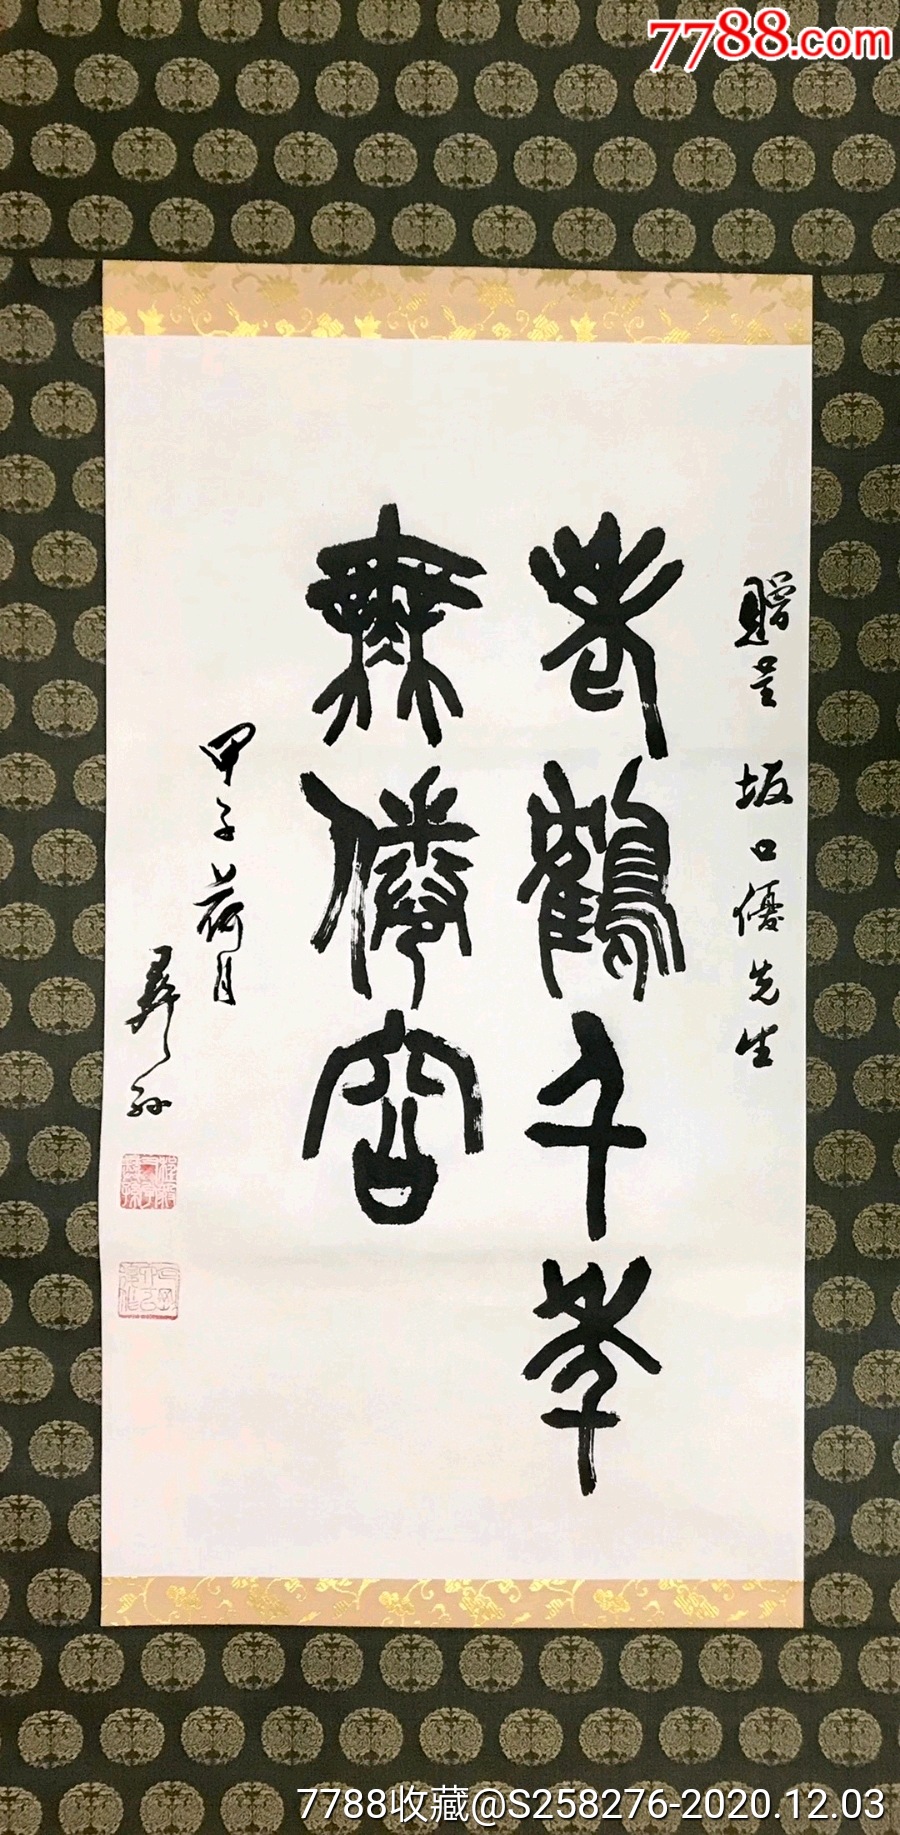 7788.com
赠呈 坂口優先生
老鶴千年
無倦容
甲子荷月
7788收藏@S258276-2020.12.03